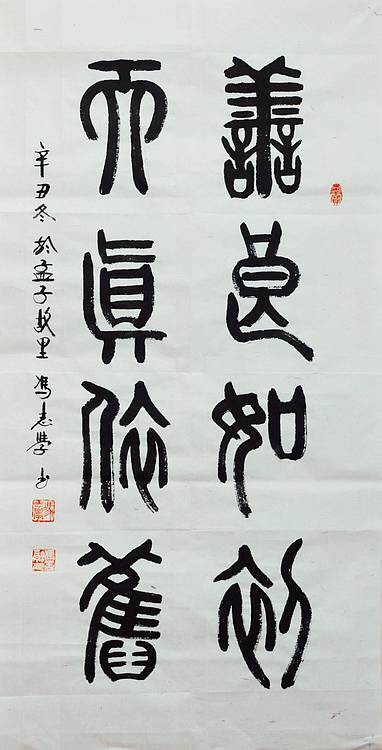 譱良如初
天真依舊
辛丑冬於孟子故里馮志學書